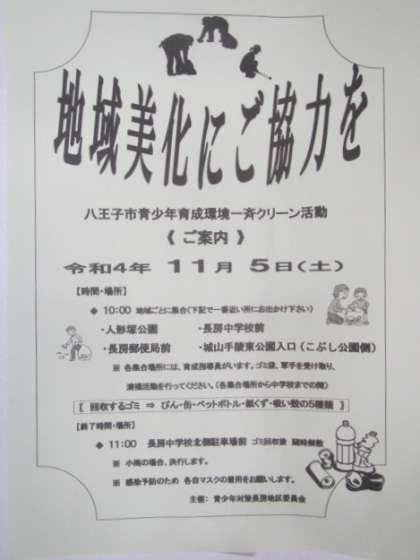 地域美化にご協力を
八王子市青少年育成環境一斉クリーン活動
《 ご案内 》
令和4年 11月 5日(土)
【時間・場所】
◆ 10:00 地域ごとに集合(下記で一番近い所にお出かけ下さい)
・人形塚公園 ・長房中学校前
・長房郵便局前 ・城山手陵東公園入口(こぶし公園側)
※ 各集合場所には、育成指導員がいます。ゴミ袋、軍手を受け取り、
清掃活動を行ってください。(各集合場所から中学校までの間)
【 回収するゴミ ⇒ びん・缶・ペットボトル・紙くず・吸い殻の5種類 】
【終了時間・場所】
◆ 11:00 長房中学校北側駐車場前 ゴミ回収後 随時解散
※ 小雨の場合、決行します。
※ 感染予防のため 各自マスクの着用をお願いします。
主催: 青少年対策長房地区委員会